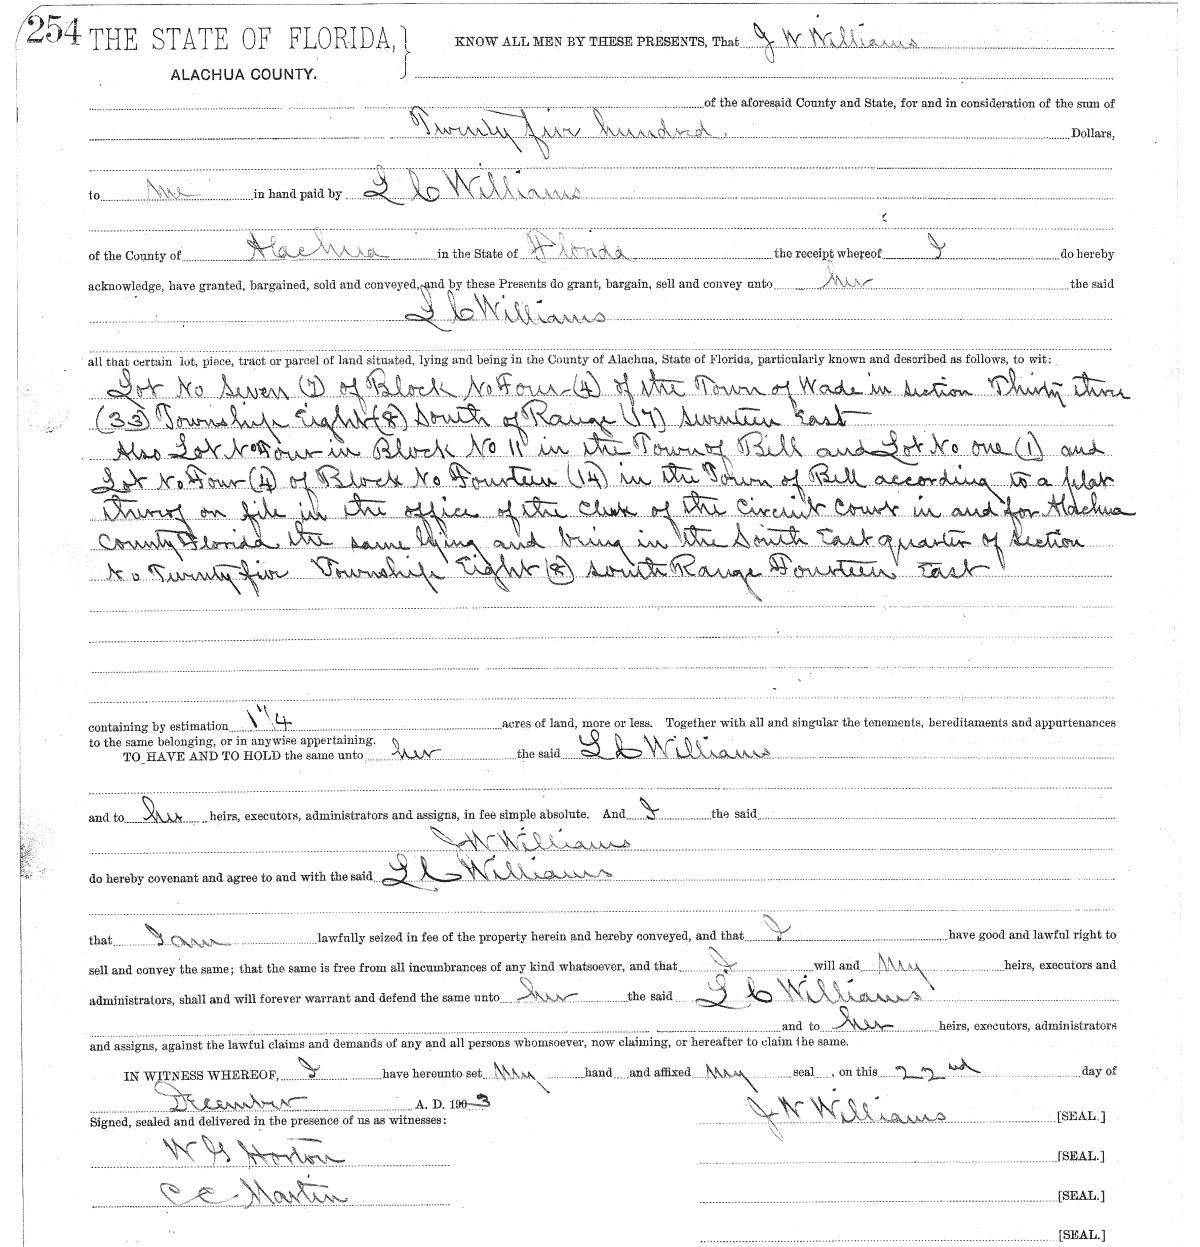 254 THE STATE OF FLORIDA, } KNOW ALL MEN BY THESE PRESENTS, That J W Williams
ALACHUA COUNTY.
of the aforesaid County and State, for and in consideration of the sum of
Twenty five hundred Dollars,
to me in hand paid by L C Williams
of the County of Alachua in the State of Florida the receipt whereof I do hereby
acknowledge, have granted, bargained, sold and conveyed, and by these Presents do grant, bargain, sell and convey unto her the said
L C Williams
all that certain lot, piece, tract or parcel of land situated, lying and being in the County of Alachua, State of Florida, particularly known and described as follows, to wit:
Lot No Seven (7) of Block No Four (4) of the Town of Wade in section Thirty three
(33) Township Eight (8) South of Range (17) Seventeen East
Also Lot No Four in Block No 11 in the Town of Bell and Lot No one (1) and
Lot No Four (4) of Block No Fourteen (14) in the Town of Bell according to a plat
thereof on file in the office of the Clerk of the Circuit Court in and for Alachua
County Florida the same lying and being in the South East quarter of Section
No Twenty five Township Eight (8) South Range Fourteen East
containing by estimation 1 1/4 acres of land, more or less. Together with all and singular the tenements, hereditaments and appurtenances
to the same belonging, or in anywise appertaining.
TO HAVE AND TO HOLD the same unto her the said L C Williams
and to her heirs, executors, administrators and assigns, in fee simple absolute. And I the said
J W Williams
do hereby covenant and agree to and with the said L C Williams
that I am lawfully seized in fee of the property herein and hereby conveyed, and that I have good and lawful right to
sell and convey the same; that the same is free from all incumbrances of any kind whatsoever, and that I will and My heirs, executors and
administrators, shall and will forever warrant and defend the same unto her the said L C Williams
and to her heirs, executors, administrators
and assigns, against the lawful claims and demands of any and all persons whomsoever, now claiming, or hereafter to claim the same.
IN WITNESS WHEREOF, I have hereunto set My hand and affixed My seal , on this 22nd day of
December A. D. 1903 J W Williams [SEAL.]
Signed, sealed and delivered in the presence of us as witnesses:
W G Horton [SEAL.]
C C Martin [SEAL.]
[SEAL.]